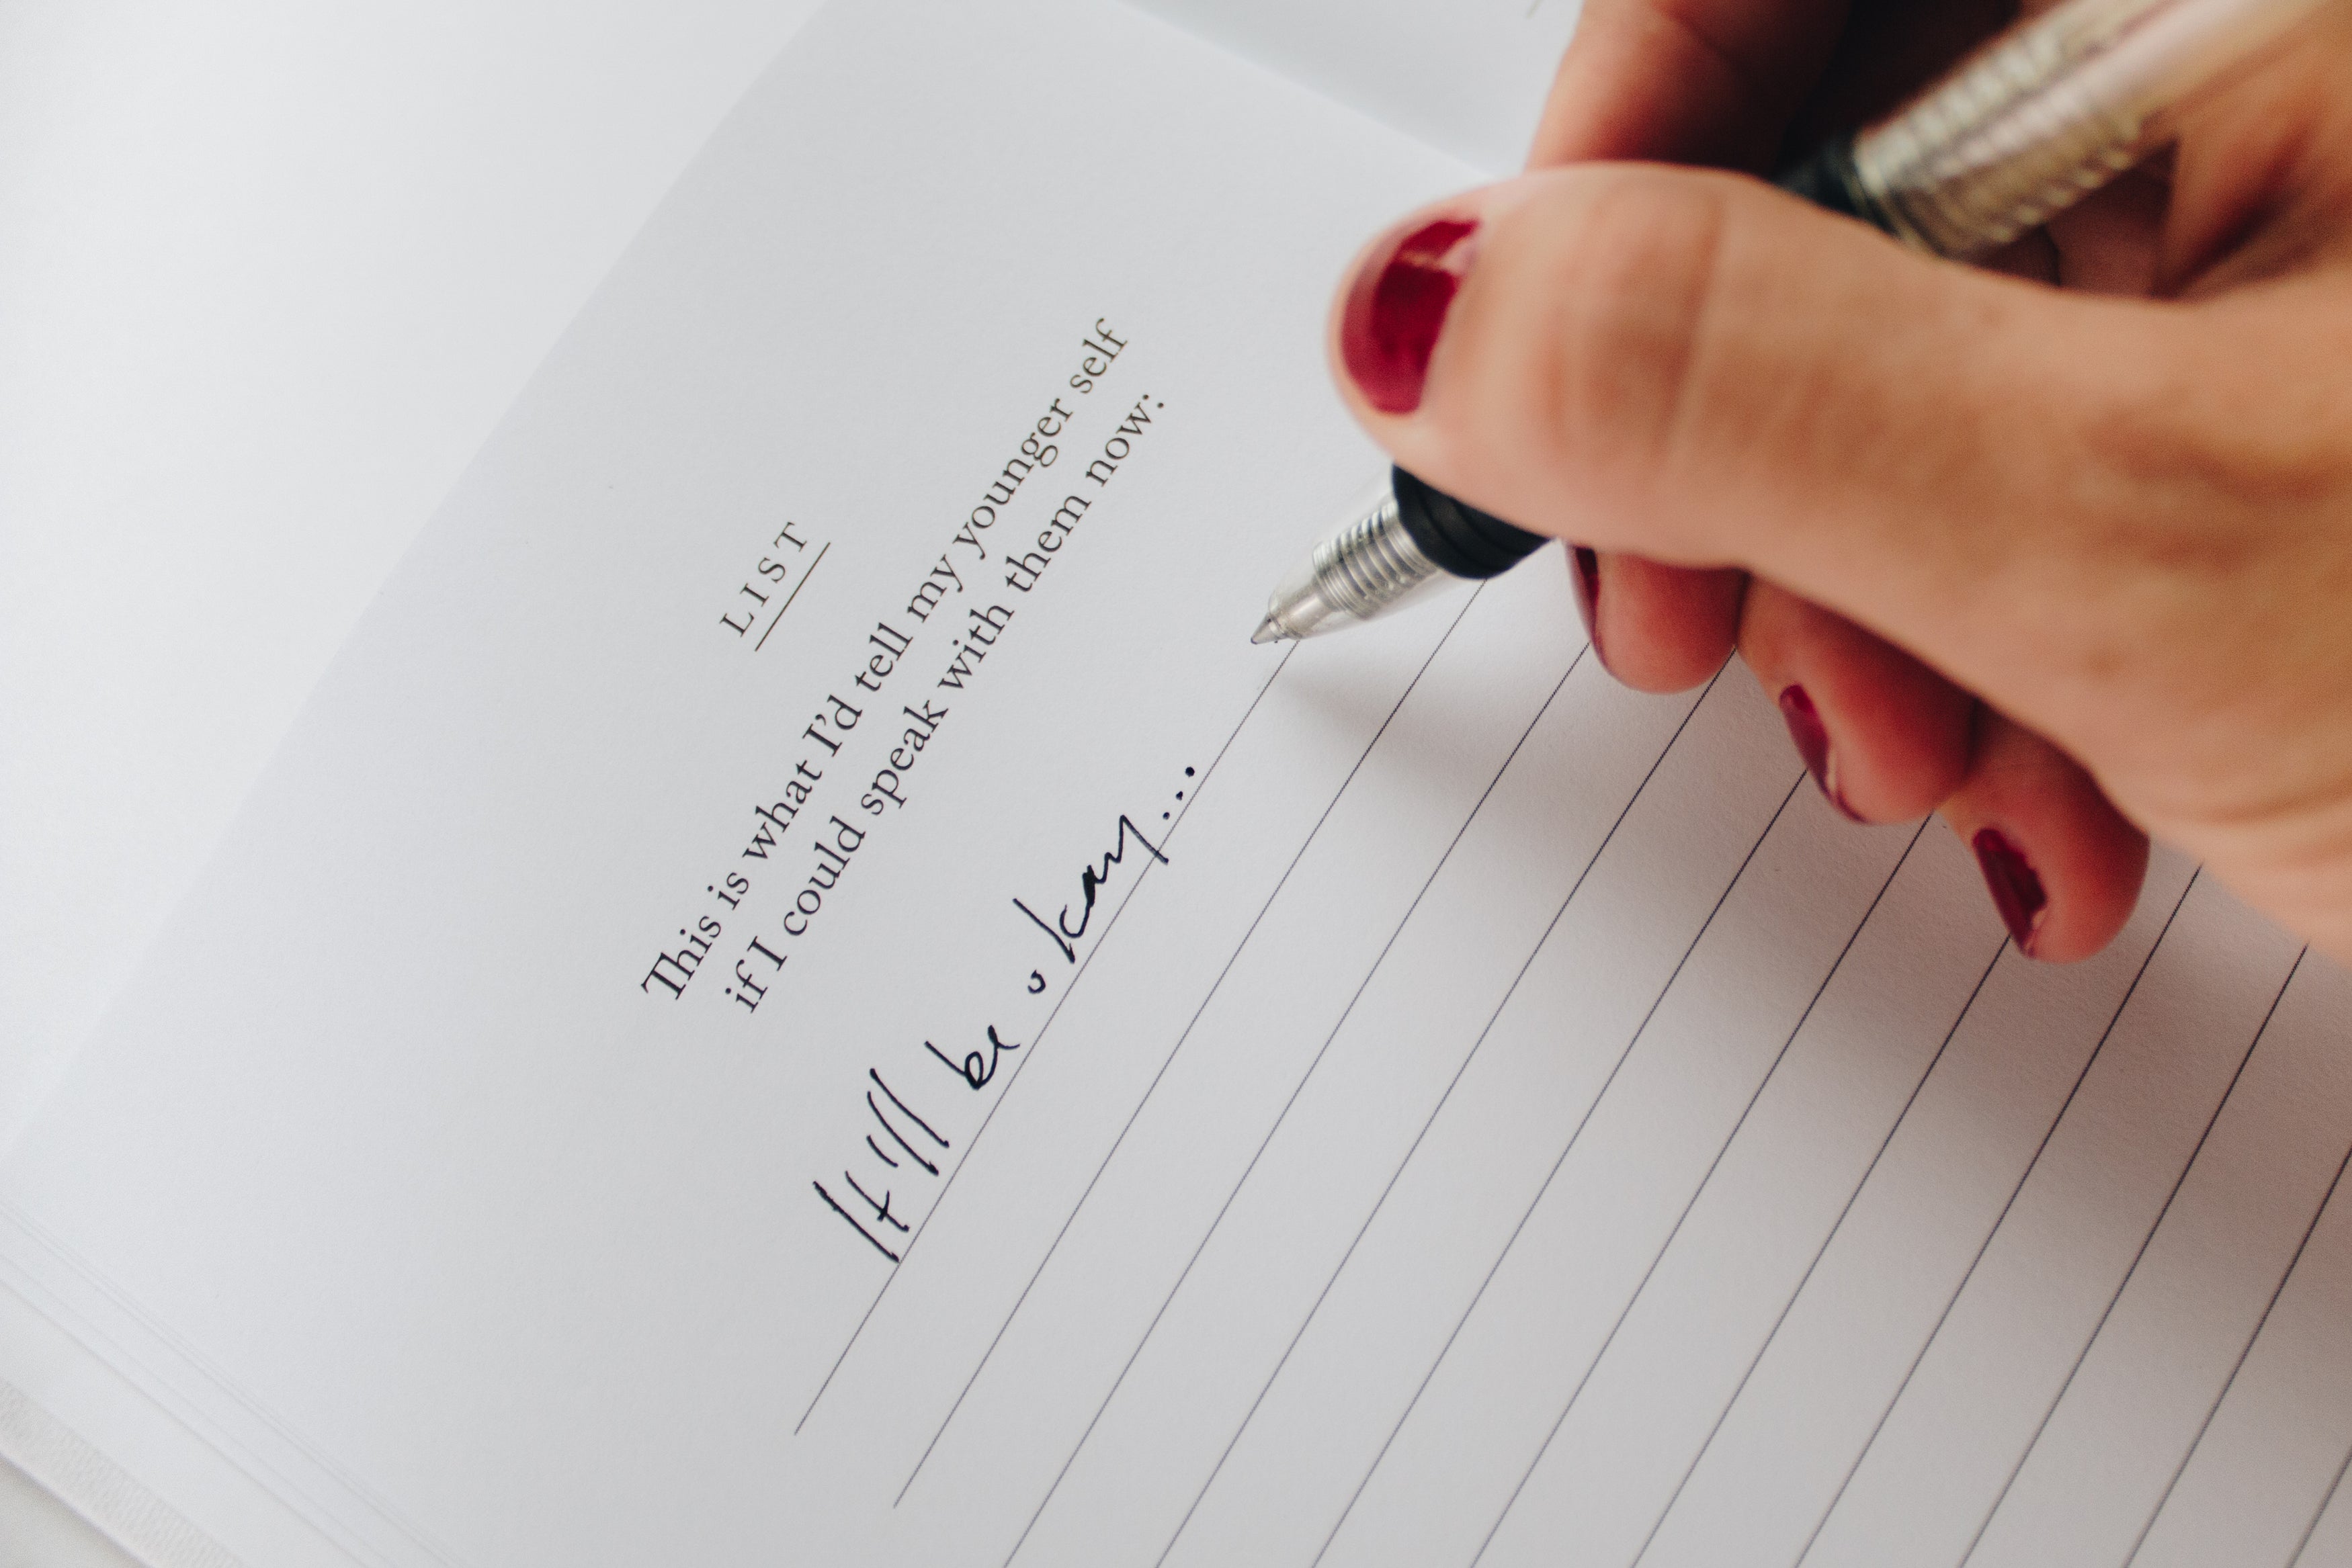 LIST
This is what I'd tell my younger self
if I could speak with them now:
It'll be okay...